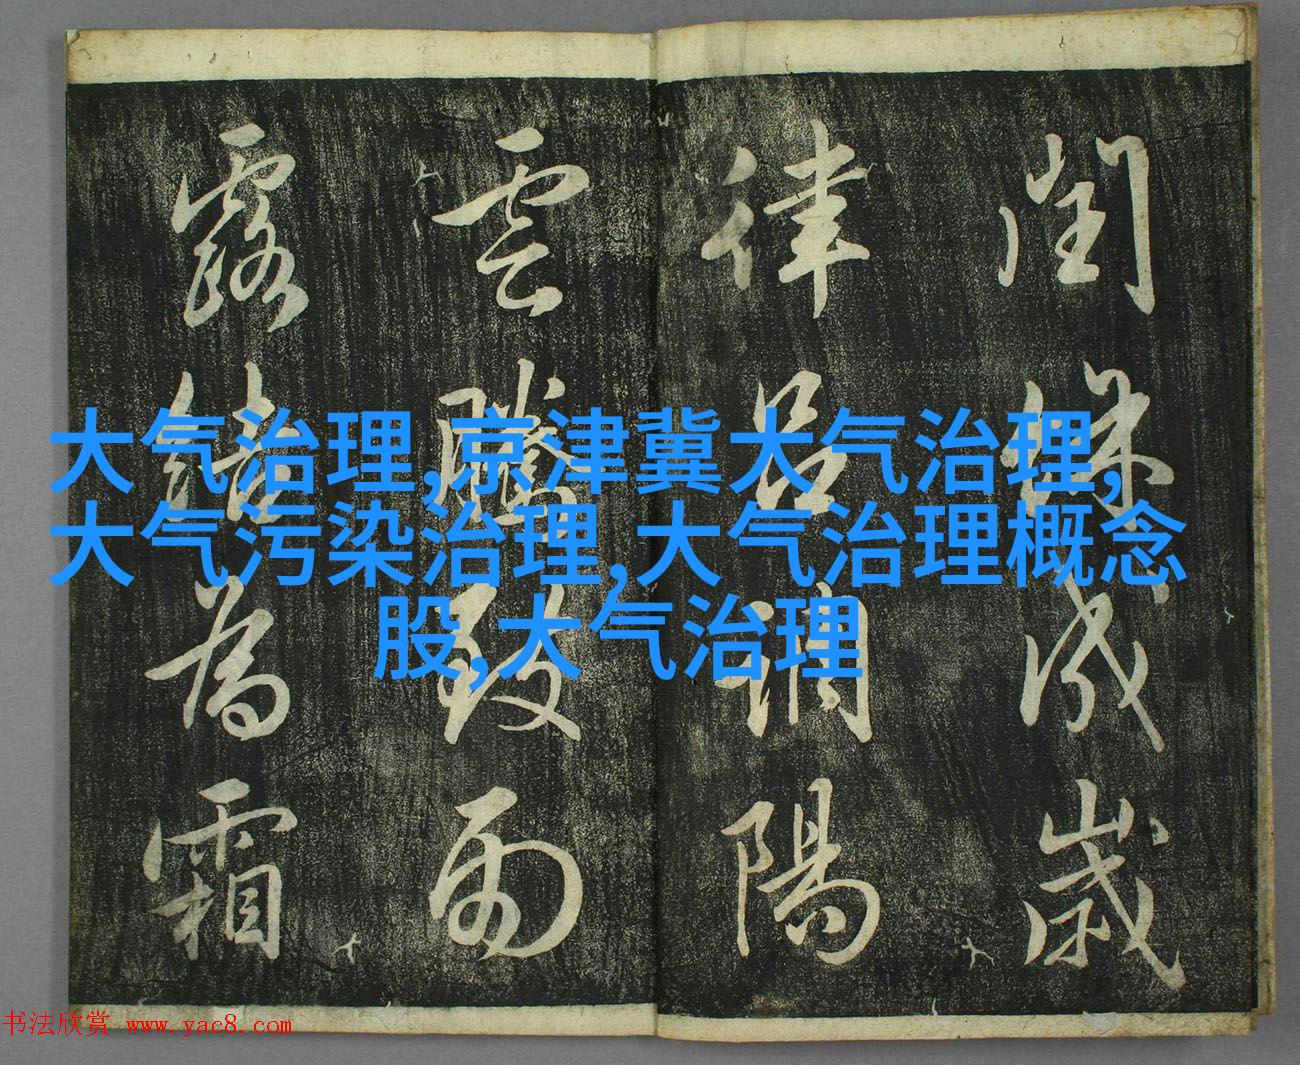 閏餘成歲
律呂調陽
雲騰致雨
露結為霜
大气治理,京津冀大气治理,
大气污染治理,大气治理概念
股,大气治理
书法欣赏 www.yac8.com